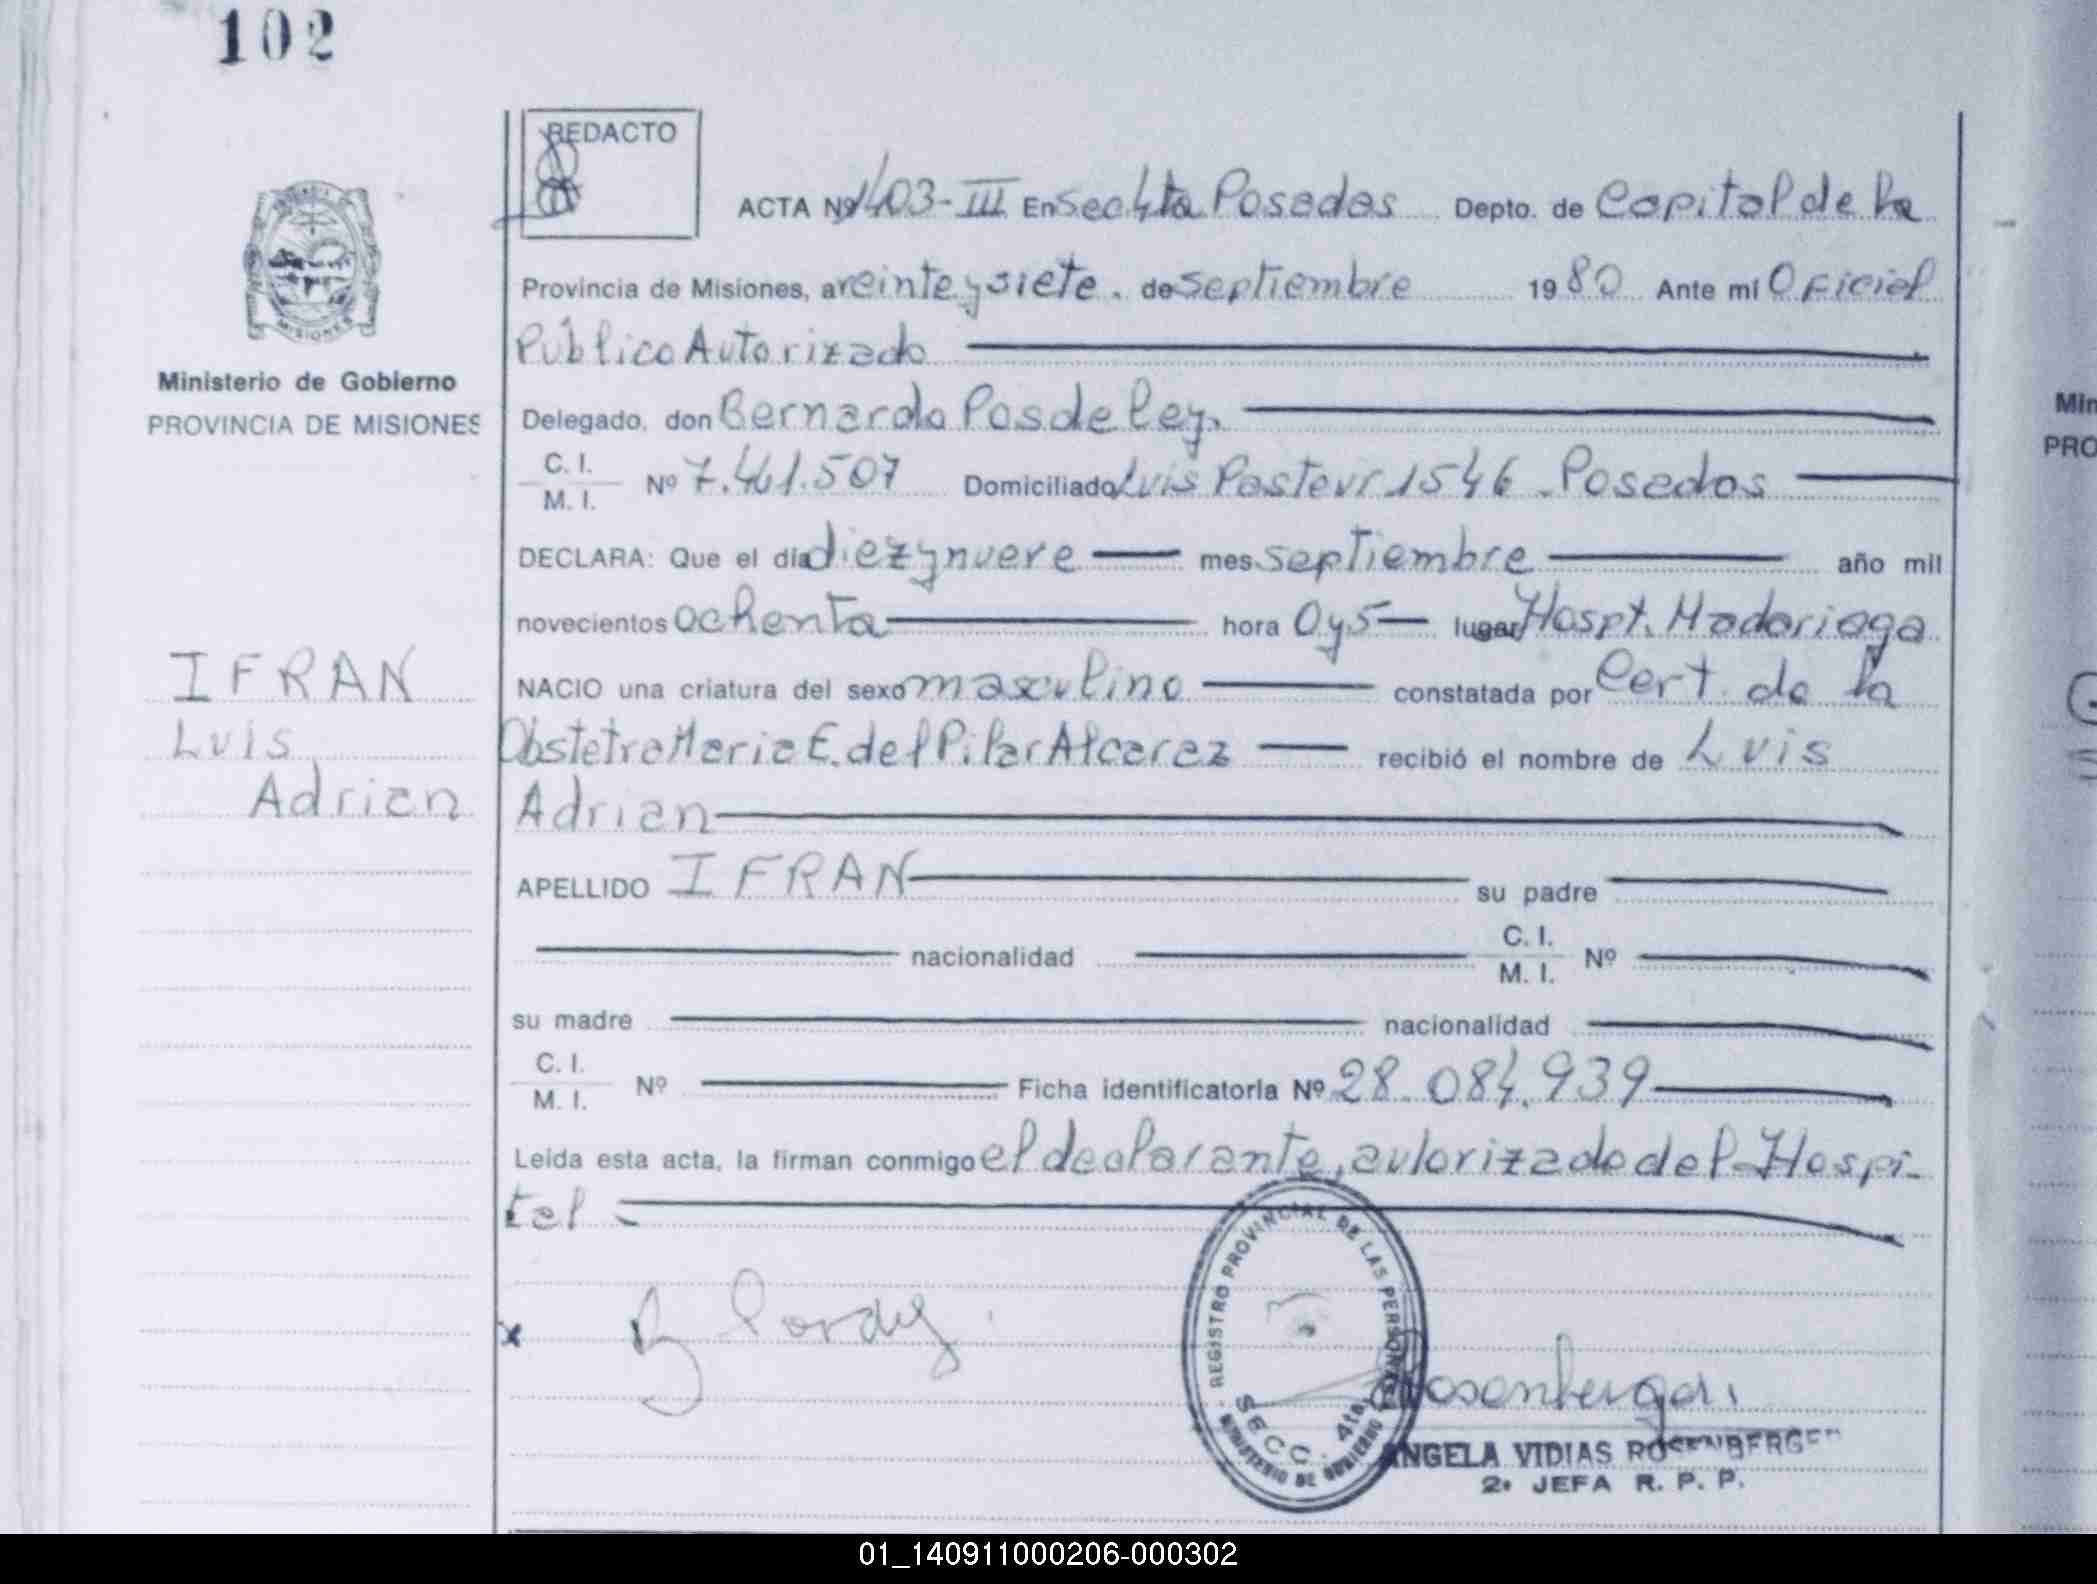 102
REDACTO
ACTA Nº 1403-III En Sec 4ta Posadas Depto. de Capital de la
Provincia de Misiones, a veinte y siete. de septiembre 1980 Ante mí Oficial
Público Autorizado
Ministerio de Gobierno
PROVINCIA DE MISIONES
Delegado, don Bernardo Posdeley.
C. I.
M. I. Nº 7.461.507 Domiciliado Luis Pasteur 1546 - Posadas
DECLARA: Que el día diez y nueve mes septiembre año mil
novecientos ochenta hora 0 y 5 lugar Hospt. Madariaga
NACIO una criatura del sexo masculino constatada por Cert. de la
Obstetra Maria E. del Pilar Alcaraz recibió el nombre de Luis
Adrian
IFRAN
Luis
Adrian
APELLIDO IFRAN su padre
nacionalidad C. I.
M. I. Nº
su madre nacionalidad
C. I.
M. I. Nº Ficha identificatoria Nº 28.084.939
Leída esta acta, la firman conmigo el declarante, autorizado del Hospi-
tal
REGISTRO PROVINCIAL DE LAS PERSONAS
SECC. 4ta.
MINISTERIO DE GOBIERNO
Rosenberger
ANGELA VIDIAS ROSENBERGER
2º JEFA R. P. P.
Min
PRO
01_140911000206-000302